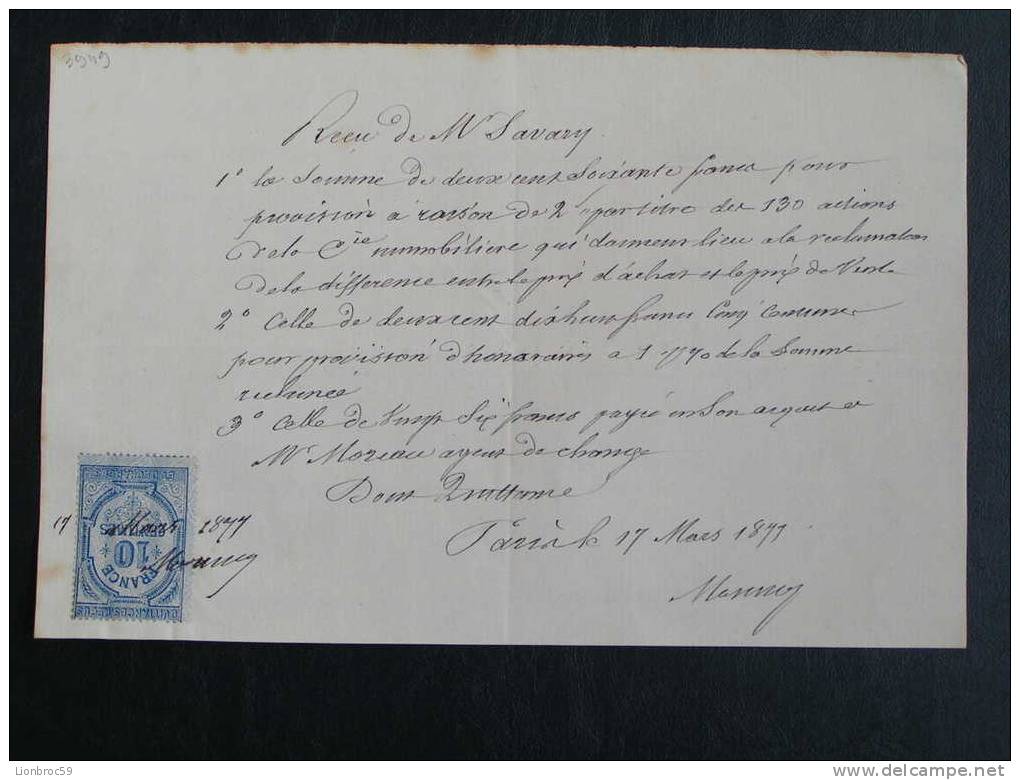 3949
Reçu de Mr Savary
1° la Somme de deux cent Soixante francs pour
provision à raison de 2 " par titre des 130 actions
de la Cie immobilière qui donneur lieu a la réclamation
De la différence entre le prix d'achat et le prix de Vente
2° Celle de deux cent dix huit francs Cinq Centimes
pour provision d'honoraires a 1 % de la Somme
réclamée
3° Celle de Vingt Six francs payée en Son acquit a
Mr Moreau agent de change
Dont Quittance
Paris le 17 Mars 1877
QUITTANCES REÇUS
FRANCE
10
CENTIMES
17 Mars 1877
Lionbroc59
delcampe.net